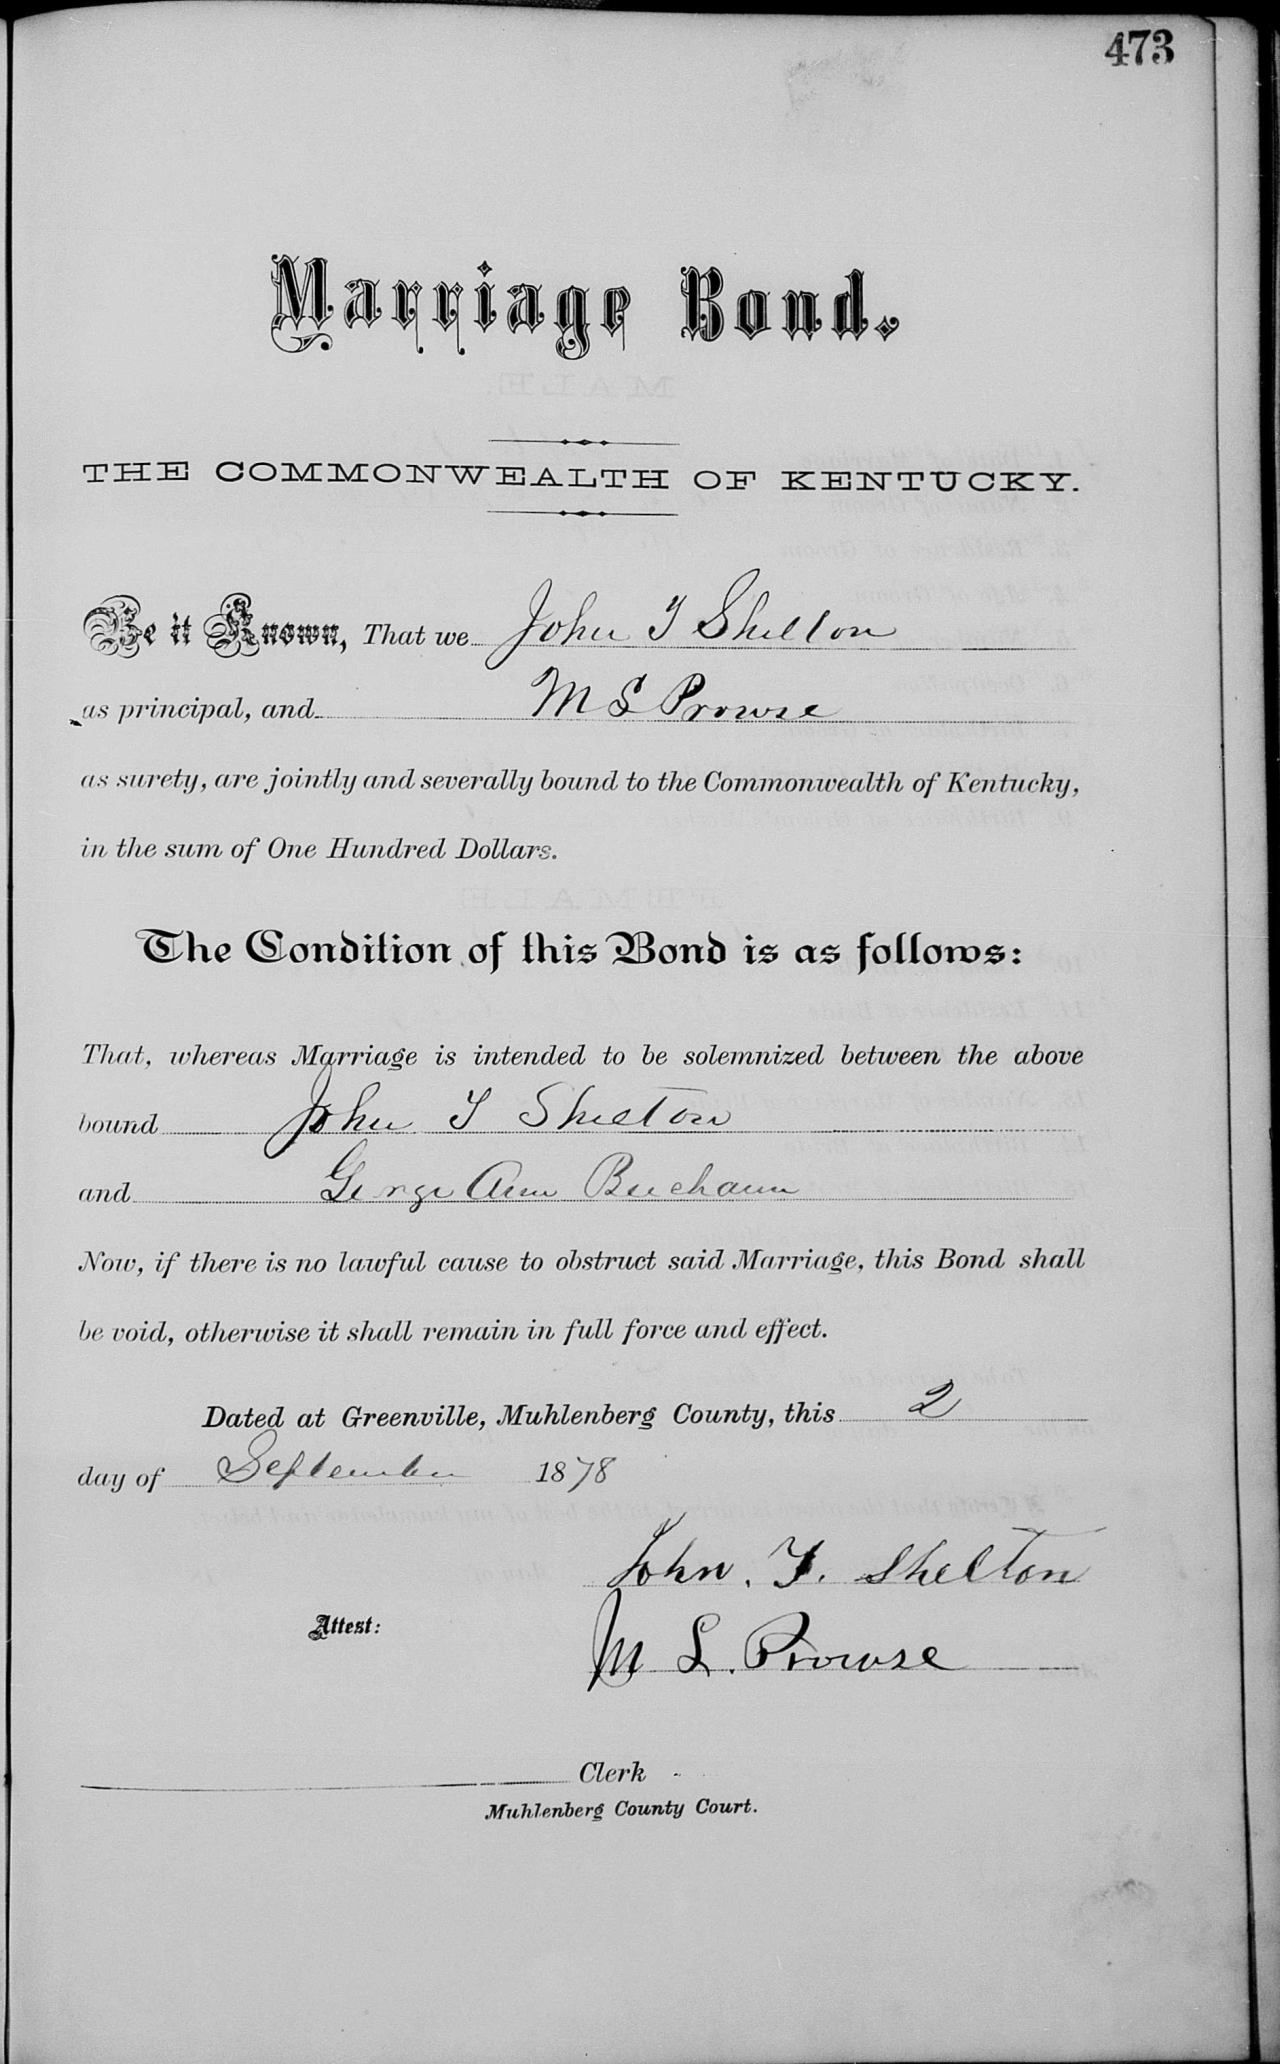 473
Marriage Bond.
THE COMMONWEALTH OF KENTUCKY.
Be it Known, That we John T Shelton
as principal, and M L Prowse
as surety, are jointly and severally bound to the Commonwealth of Kentucky,
in the sum of One Hundred Dollars.
The Condition of this Bond is as follows:
That, whereas Marriage is intended to be solemnized between the above
bound John T Shelton
and George Ann Buchann
Now, if there is no lawful cause to obstruct said Marriage, this Bond shall
be void, otherwise it shall remain in full force and effect.
Dated at Greenville, Muhlenberg County, this 2
day of September 1878
John. T. Shelton
Attest:
M L. Prowse
Clerk
Muhlenberg County Court.